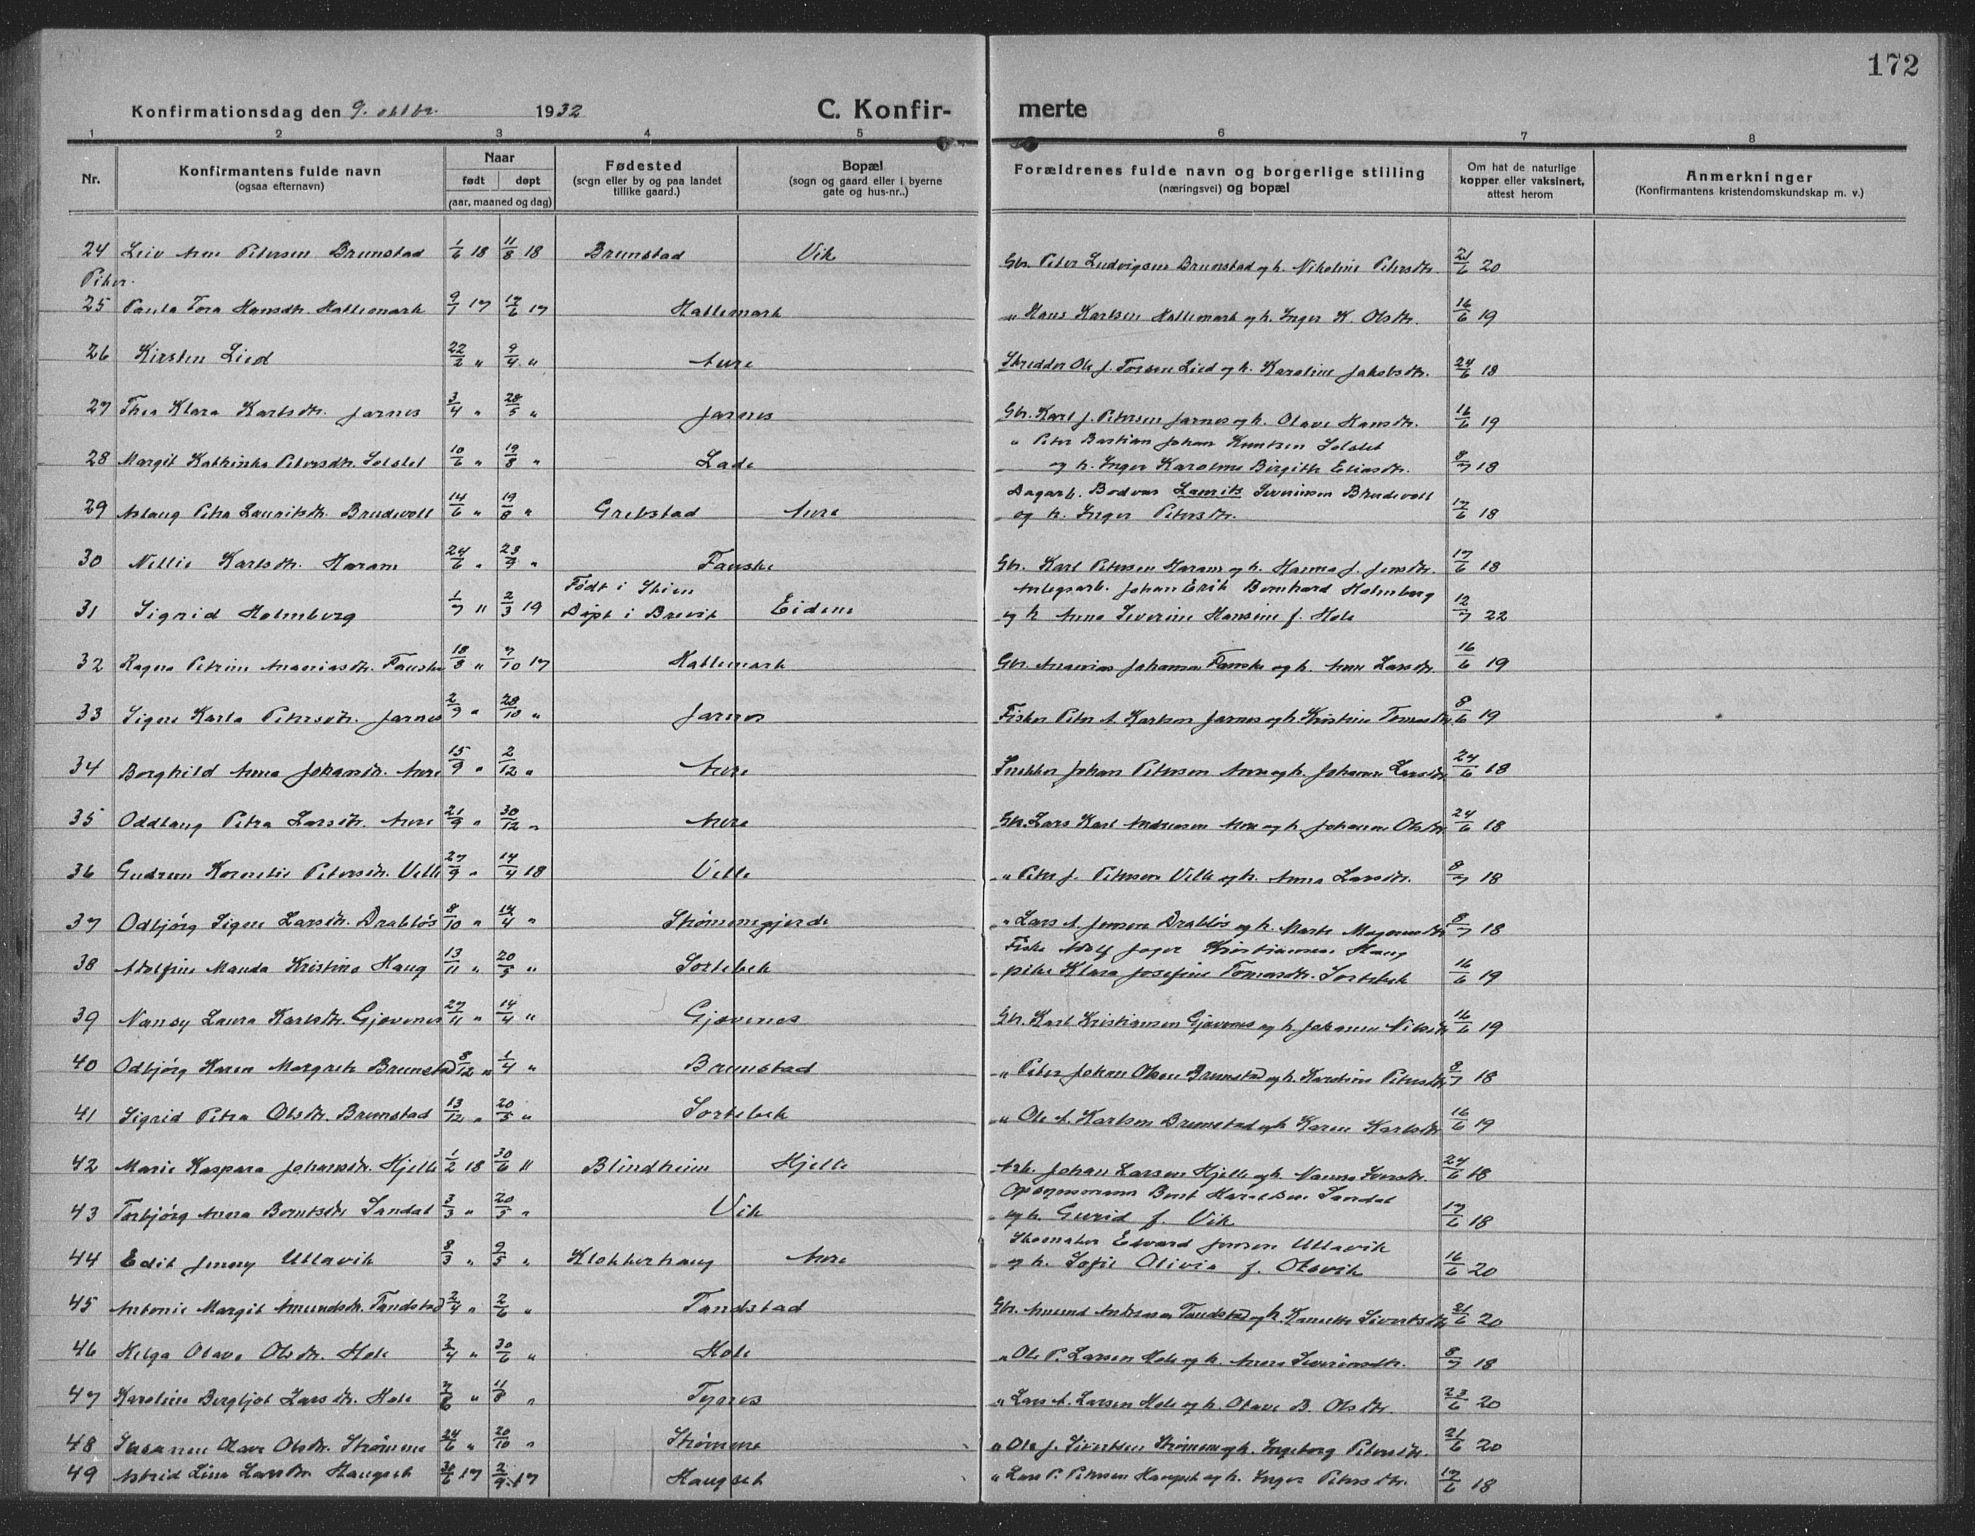 172
Konfirmationsdag den 9. oktbr. 1932 C. Konfir- merte
1 2 3 4 5 6 7 8
Nr. Konfirmantens fulde navn (ogsaa efternavn) Naar født døpt (aar, maaned og dag) Fødested (sogn eller by og paa landet tillike gaard.) Bopæl (sogn og gaard eller i byerne gate og hus-nr..) Forældrenes fulde navn og borgerlige stilling (næringsvei) og bopæl Om hat de naturlige kopper eller vaksinert, attest herom Anmerkninger (Konfirmantens kristendomskundskap m. v.)
24 Leiv Arne Petersen Brunstad 1/6 18 11/8 18 Brunstad Vik Gbr. Peter Ludvigsen Brunstad og h. Nikoline Petersdtr. 21/6 20
Peter.
25 Paula Tora Hansdtr. Hattemark 9/7 17 17/6 17 Hattemark " Hans Karlsen Hattemark og h. Inger K. Olsdtr. 16/6 19
26 Kirsten Lied 22/2 " 9/4 " Aure Skredder Ole J. Torsen Lied og h. Karoline Jakobsdtr. 24/6 18
27 Thea Klara Karlsdtr. Jarnes 3/4 " 28/5 " Jarnes Gbr. Karl J. Petersen Jarnes og h. Olave Hansdtr. 16/6 19
" Peter Bastian Johan Knutsen Solstet
28 Margit Kathinka Petersdtr. Solstet 10/6 " 19/8 " Lade og h. Inger Karoline Birgitte Eliasdtr. 8/7 18
Dagarb. Bodvar Laurits Severinsen Brudevoll
29 Aslaug Petra Lauritsdtr. Brudevoll 14/6 " 19/8 " Grebstad Aure og h. Inger Petersdtr. 17/6 18
30 Nellie Karlsdtr. Haram 24/6 " 23/9 " Fauske Gbr. Karl Petersen Haram og h. Hanna J. Jensdtr. 17/6 18
Født i Skien Anlegsarb. Johan Erik Bernhard Holmberg
31 Sigrid Holmberg 1/7 " 2/3 19 Døpt i Brevik Eidem og h Anna Severine Hansine f. Hole 12/7 22
32 Ragna Petrine Ananiasdtr. Fauske 18/8 " 7/10 17 Hattemark Gbr. Ananias Johansen Fauske og h. Anne Larsdtr. 16/6 19
33 Signe Karla Petersdtr. Jarnes 2/9 " 28/10 " Jarnes Fisker Peter A. Karlsen Jarnes og h. Kristine Tomasdtr. 8/6 19
34 Borghild Anna Johansdtr. Aure 15/9 " 2/12 " Aure Snekker Johan Petersen Aure og h. Johanne Larsdtr. 24/6 18
35 Oddlaug Petra Larsdtr. Aure 21/9 " 30/12 " Aure Gbr. Lars Karl Andreasen Aure og h. Johanne Olsdtr. 24/6 18
36 Gudrun Kornelie Petersdtr. Velle 27/9 " 14/4 18 Velle " Peter J. Petersen Velle og h. Anna Larsdtr. 8/7 18
37 Odbjørg Signe Larsdtr. Drabløs 8/10 " 14/4 " Strømmegjerde " Lars A. Jensen Drabløs og h. Marte Magnusdtr. 8/7 18
Fisk. Adolf Inger Kristiansen Haug
38 Adolfine Manda Kristine Haug 13/11 " 20/5 " Sortebek pike Klara Josefine Tomasdtr. Sortebek 16/6 19
39 Nansy Laura Karlsdtr. Gjævenes 27/11 " 14/4 " Gjævenes Gbr. Karl Kristiansen Gjævenes og h Johanne Nilsdtr. 16/6 19
40 Odbjørg Karen Margrete Brunstad 8/12 " 1/4 " Brunstad " Peter Johan Olsen Brunstad og h. Karoline Petersdtr 8/7 18
41 Sigrid Petra Olsdtr. Brunstad 13/12 " 20/5 " Sortebek " Ole A. Karlsen Brunstad og h. Karen Karlsdtr 16/6 19
42 Marie Kaspara Johansdtr. Hjelle 1/2 18 30/6 " Blindheim Hjelle Arb. Johan Larsen Hjelle og h. Nanna Iversdtr. 24/6 18
Opsynsmann Bernt Haraldsen Sandal
43 Torbjørg Anna Berntsdtr Sandal 3/3 " 20/5 " Vik og h. Gurid f. Vik 17/6 18
Skomaker Edvard Jensen Ullavik
44 Edit Jenny Ullavik 8/3 " 9/5 " Klokkerhaug Aure og h. Sofie Olivia f. Otevik 16/6 20
45 Antonie Margit Amundsdtr. Tandstad 2/4 " 2/6 " Tandstad Gbr. Amund Andreasen Tandstad og h. Kanutte Sivertsdtr 21/6 20
46 Helga Olave Olsdtr. Hole 3/4 " 30/6 " Hole " Ole P. Larsen Hole og h. Anna Severinsdtr. 8/7 18
47 Karoline Bergljot Larsdtr. Hole 7/6 " 11/8 " Tynes " Lars A. Larsen Hole og h. Olave B. Olsdtr. 23/6 20
48 Susanne Olave Olsdtr. Strømme 24/6 " 20/10 " Strømme " Ole J. Sivertsen Strømme og h. Ingeborg Petersdtr. 21/6 20
49 Astrid Lina Larsdtr Haugset 30/6 17 2/9 17 Haugset " Lars P. Petersen Haugset og h. Inger Petersdtr. 17/6 18